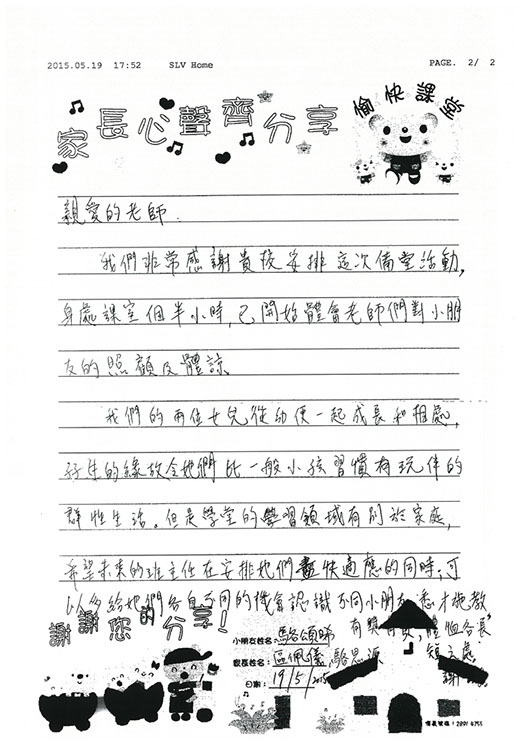 2015.05.19 17:52 SLV Home PAGE. 2/ 2
家長心聲齊分享
愉快課堂
親愛的老師.
我們非常感謝貴校安排這次備堂活動,
身處課室個半小時,已開始體會老師們對小朋
友的照顧及體諒
我們的兩位女兒從幼便一起成長和相處,
孖生的緣故令她們比一般小孩習慣有玩伴的
群性生活。但是學堂的學習領域有別於家庭,
希望未來的班主任在安排她們盡快適應的同時,可
以多給她們各自不同的機會認識不同小朋友,
施教
謝謝您的分享!
小朋友姓名: 駱頌晞
家長姓名: 區佩儀, 駱思源
日期: 19/5/2015